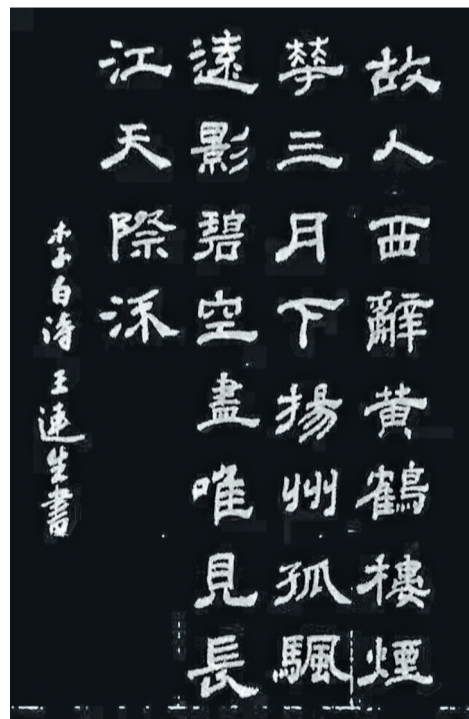 故人西辭黄鶴樓煙
華三月下揚州孤颿
遠影碧空盡唯見長
江天際流
李白诗 王連生書